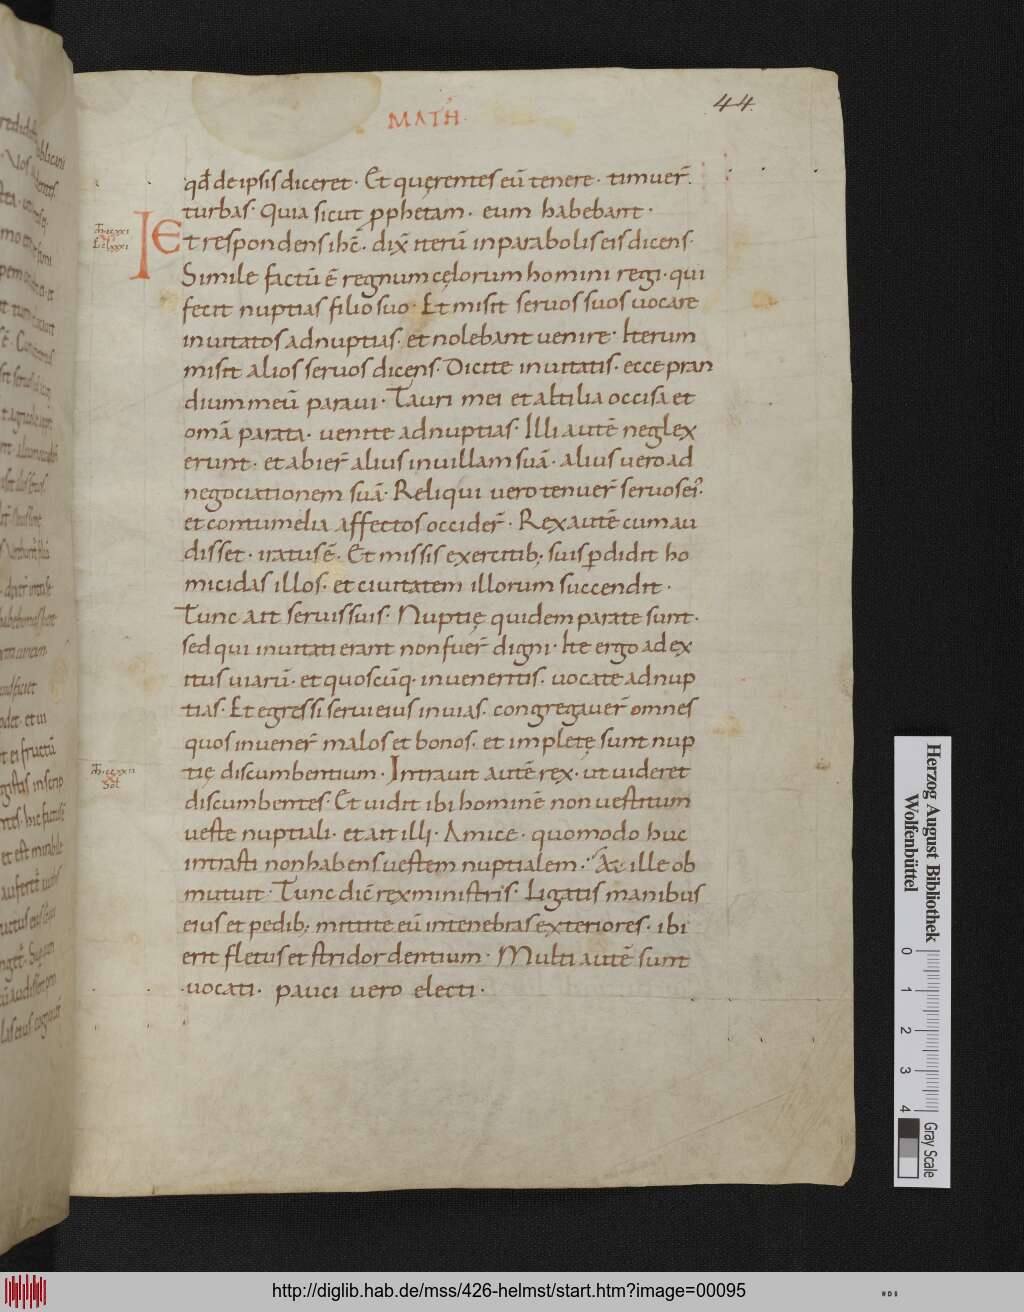 MATH̄.
44.
qđ de ipsis diceret · Et quęrentes eū tenere · timuer̄.
turbas · Quia sicut ꝓphetam · eum habebant ·
Et respondens ihc̄ · dix̄ iterū in parabolis eis dicens ·
Simile factū ē regnum cęlorum homini regi · qui
fecit nuptias filio suo · Et misit servos suos vocare
invitatos ad nuptias · et nolebant venire · Iterum
misit alios servos dicens · Dicite invitatis · ecce pran
dium meū paravi · Tauri mei et altilia occisa et
omā parata · venite ad nuptias · Illi autē neglex
erunt · et abier̄ alius in villam suā · alius vero ad
negociationem suā · Reliqui vero tenuer̄ servos ei᾽ ·
et contumelia affectos occider̄ · Rex autē cum au
disset · iratus ē · Et missis exercitib; suis ꝑdidit ho
micidas illos · et civitatem illorum succendit ·
Tunc ait servis suis · Nuptię quidem parate sunt ·
sed qui invitati erant non fuer̄ digni · Ite ergo ad ex
itus viarū · et quoscūq· inveneritis · vocate ad nup
tias · Et egressi servi eius in vias · congregaver̄ omnes
quos invener̄ malos et bonos · et impletę sunt nup
tię discumbentium · Intravit autē rex · ut videret
discumbentes · Et vidit ibi hominē non vestitum
veste nuptiali · et ait illi · Amice · quomodo huc
intrasti non habens vestem nuptialem · At ille ob
mutuit · Tunc dic̄ rex ministris · Ligatis manibus
eius et pedib; mittite eū in tenebras exteriores · ibi
erit fletus et stridor dentium · Multi autē sunt
vocati · pauci vero electi ·
Herzog August Bibliothek
Wolfenbüttel
0 1 2 3 4
Gray Scale
http://diglib.hab.de/mss/426-helmst/start.htm?image=00095